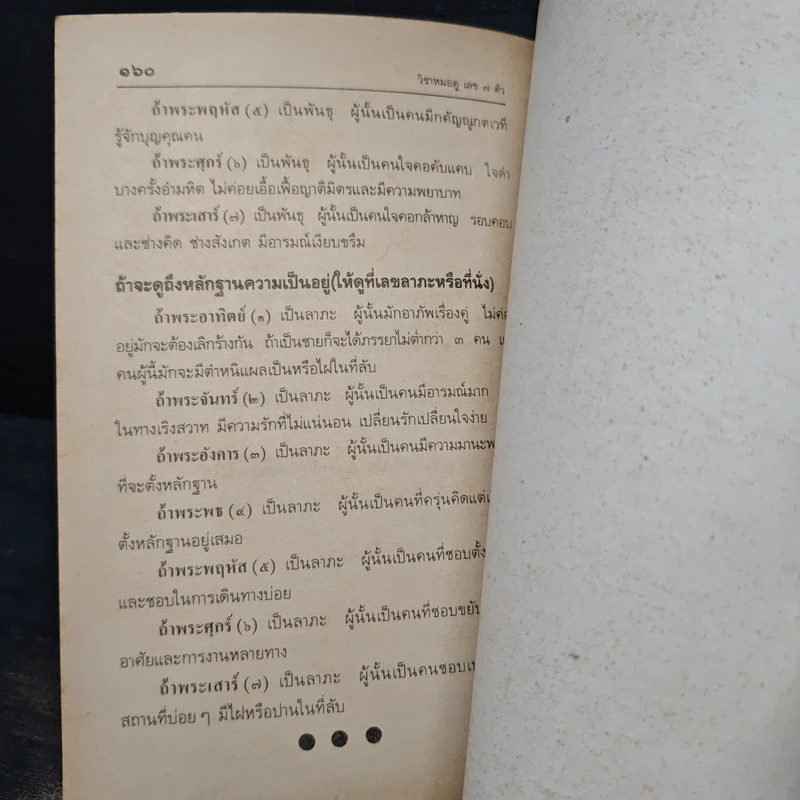 ๑๖๐
วิชาหมอดู เลข ๗ ตัว
ถ้าพระพฤหัส (๕) เป็นพันธุ ผู้นั้นเป็นคนมีกตัญญูกตเวที
รู้จักบุญคุณคน
ถ้าพระศุกร์ (๖) เป็นพันธุ ผู้นั้นเป็นคนใจคอคับแคบ ใจดำ
บางครั้งอำมหิต ไม่ค่อยเอื้อเฟื้อญาติมิตรและมีความพยาบาท
ถ้าพระเสาร์ (๗) เป็นพันธุ ผู้นั้นเป็นคนใจคอกล้าหาญ รอบคอบ
และช่างคิด ช่างสังเกต มีอารมณ์เงียบขรึม
ถ้าจะดูถึงหลักฐานความเป็นอยู่(ให้ดูที่เลขลาภะหรือที่นั่ง)
ถ้าพระอาทิตย์ (๑) เป็นลาภะ ผู้นั้นมักอาภัพเรื่องคู่ ไม่ค่
อยู่มักจะต้องเลิกร้างกัน ถ้าเป็นชายก็จะได้ภรรยาไม่ต่ำกว่า ๓ คน
คนผู้นี้มักจะมีตำหนิแผลเป็นหรือไฝในที่ลับ
ถ้าพระจันทร์ (๒) เป็นลาภะ ผู้นั้นเป็นคนมีอารมณ์มาก
ในทางเริงสวาท มีความรักที่ไม่แน่นอน เปลี่ยนรักเปลี่ยนใจง่าย
ถ้าพระอังคาร (๓) เป็นลาภะ ผู้นั้นเป็นคนมีความมานะพ
ที่จะตั้งหลักฐาน
ถ้าพระพธ (๔) เป็นลาภะ ผู้นั้นเป็นคนที่ครุ่นคิดแต่
ตั้งหลักฐานอยู่เสมอ
ถ้าพระพฤหัส (๕) เป็นลาภะ ผู้นั้นเป็นคนที่ชอบตั้ง
และชอบในการเดินทางบ่อย
ถ้าพระศุกร์ (๖) เป็นลาภะ ผู้นั้นเป็นคนที่ชอบขยับ
อาศัยและการงานหลายทาง
ถ้าพระเสาร์ (๗) เป็นลาภะ ผู้นั้นเป็นคนชอบ
สถานที่บ่อย ๆ มีไฝหรือปานในที่ลับ